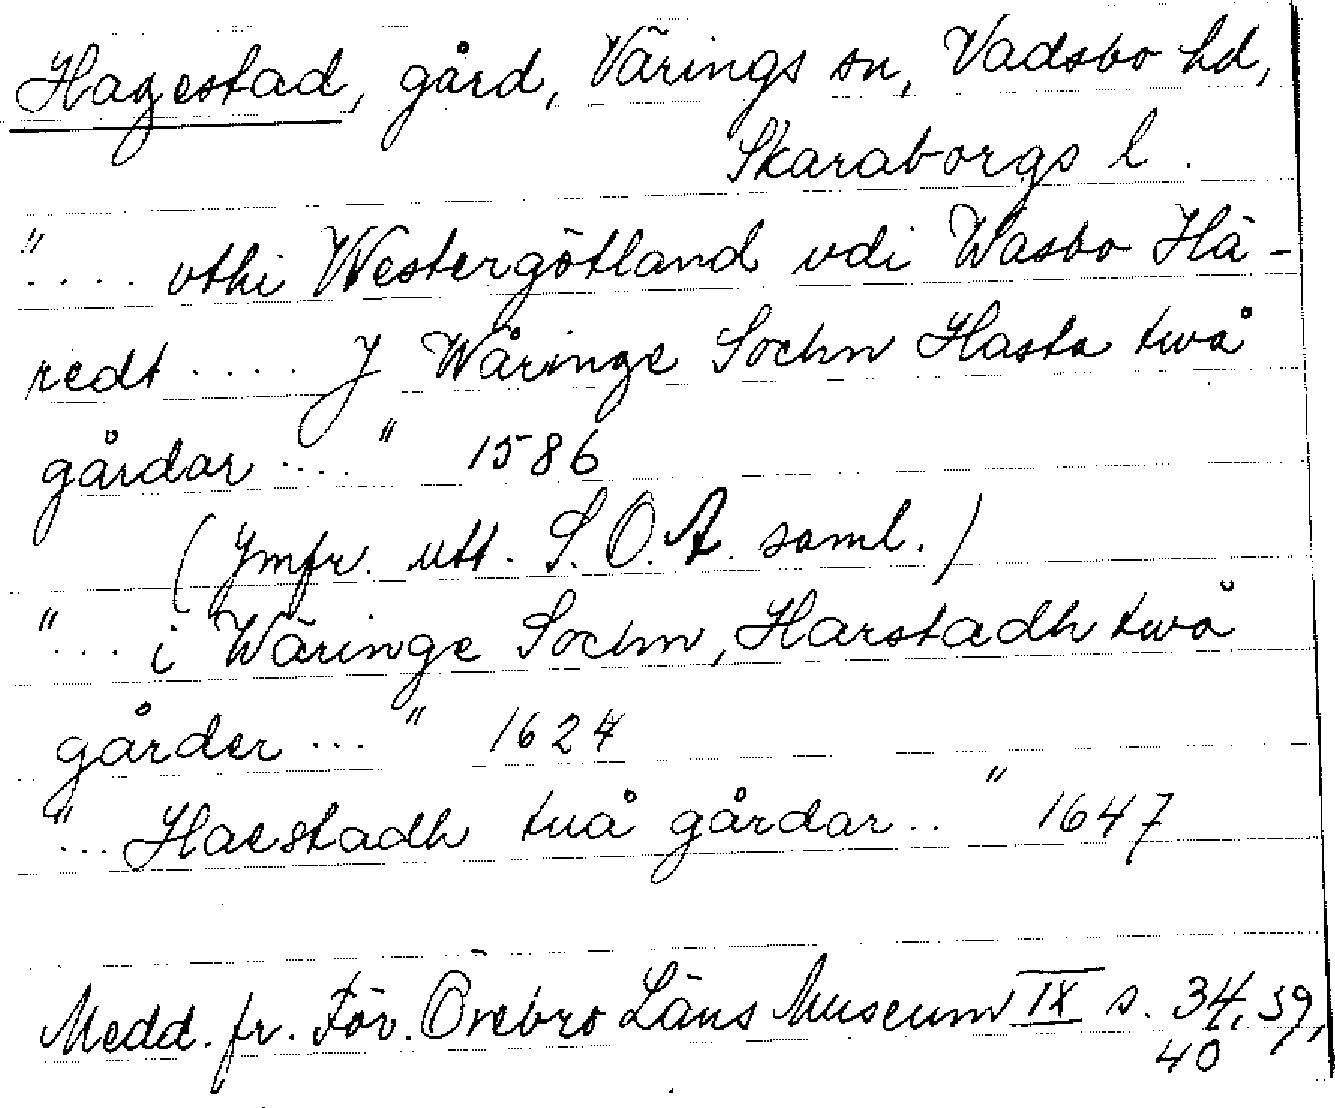 Hagestad, gård, Värings sn, Vadsbo hd,
Skaraborgs l.
".... vthi Westergötland vdi Wasbo Hä-
redt .... J Wåringe Sochn Hasta twå
gårdar ...." 1586
(Jmfr. utt. S.O.A. saml.)
"... i Wäringe Sochn, Harstadh twå
gårder ..." 1624
"... Haestadh tuå gårdar .. " 1647
Medd. fr. För. Örebro Läns Museum IX s. 34, 39,
40